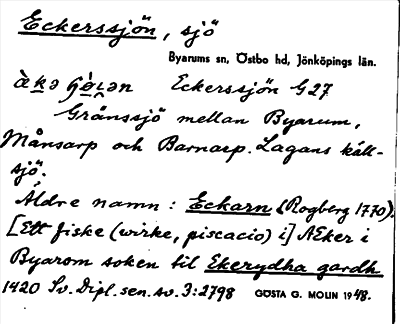 Eckerssjön, sjö
Byarums sn, Östbo hd, Jönköpings län.
Eckerssjön G27
Gränssjö mellan Byarum,
Månsarp och Barnarp. Lagans käll-
sjö.
Äldre namn: Eckarn (Rogberg 1770).
[Ett fiske (wirke, piscacio) i] Æker i
Byarom soken til Ekerydha gardh
1420 Sv. Dipl. sen. av. 3:2798 GÖSTA G. MOLIN 1948.